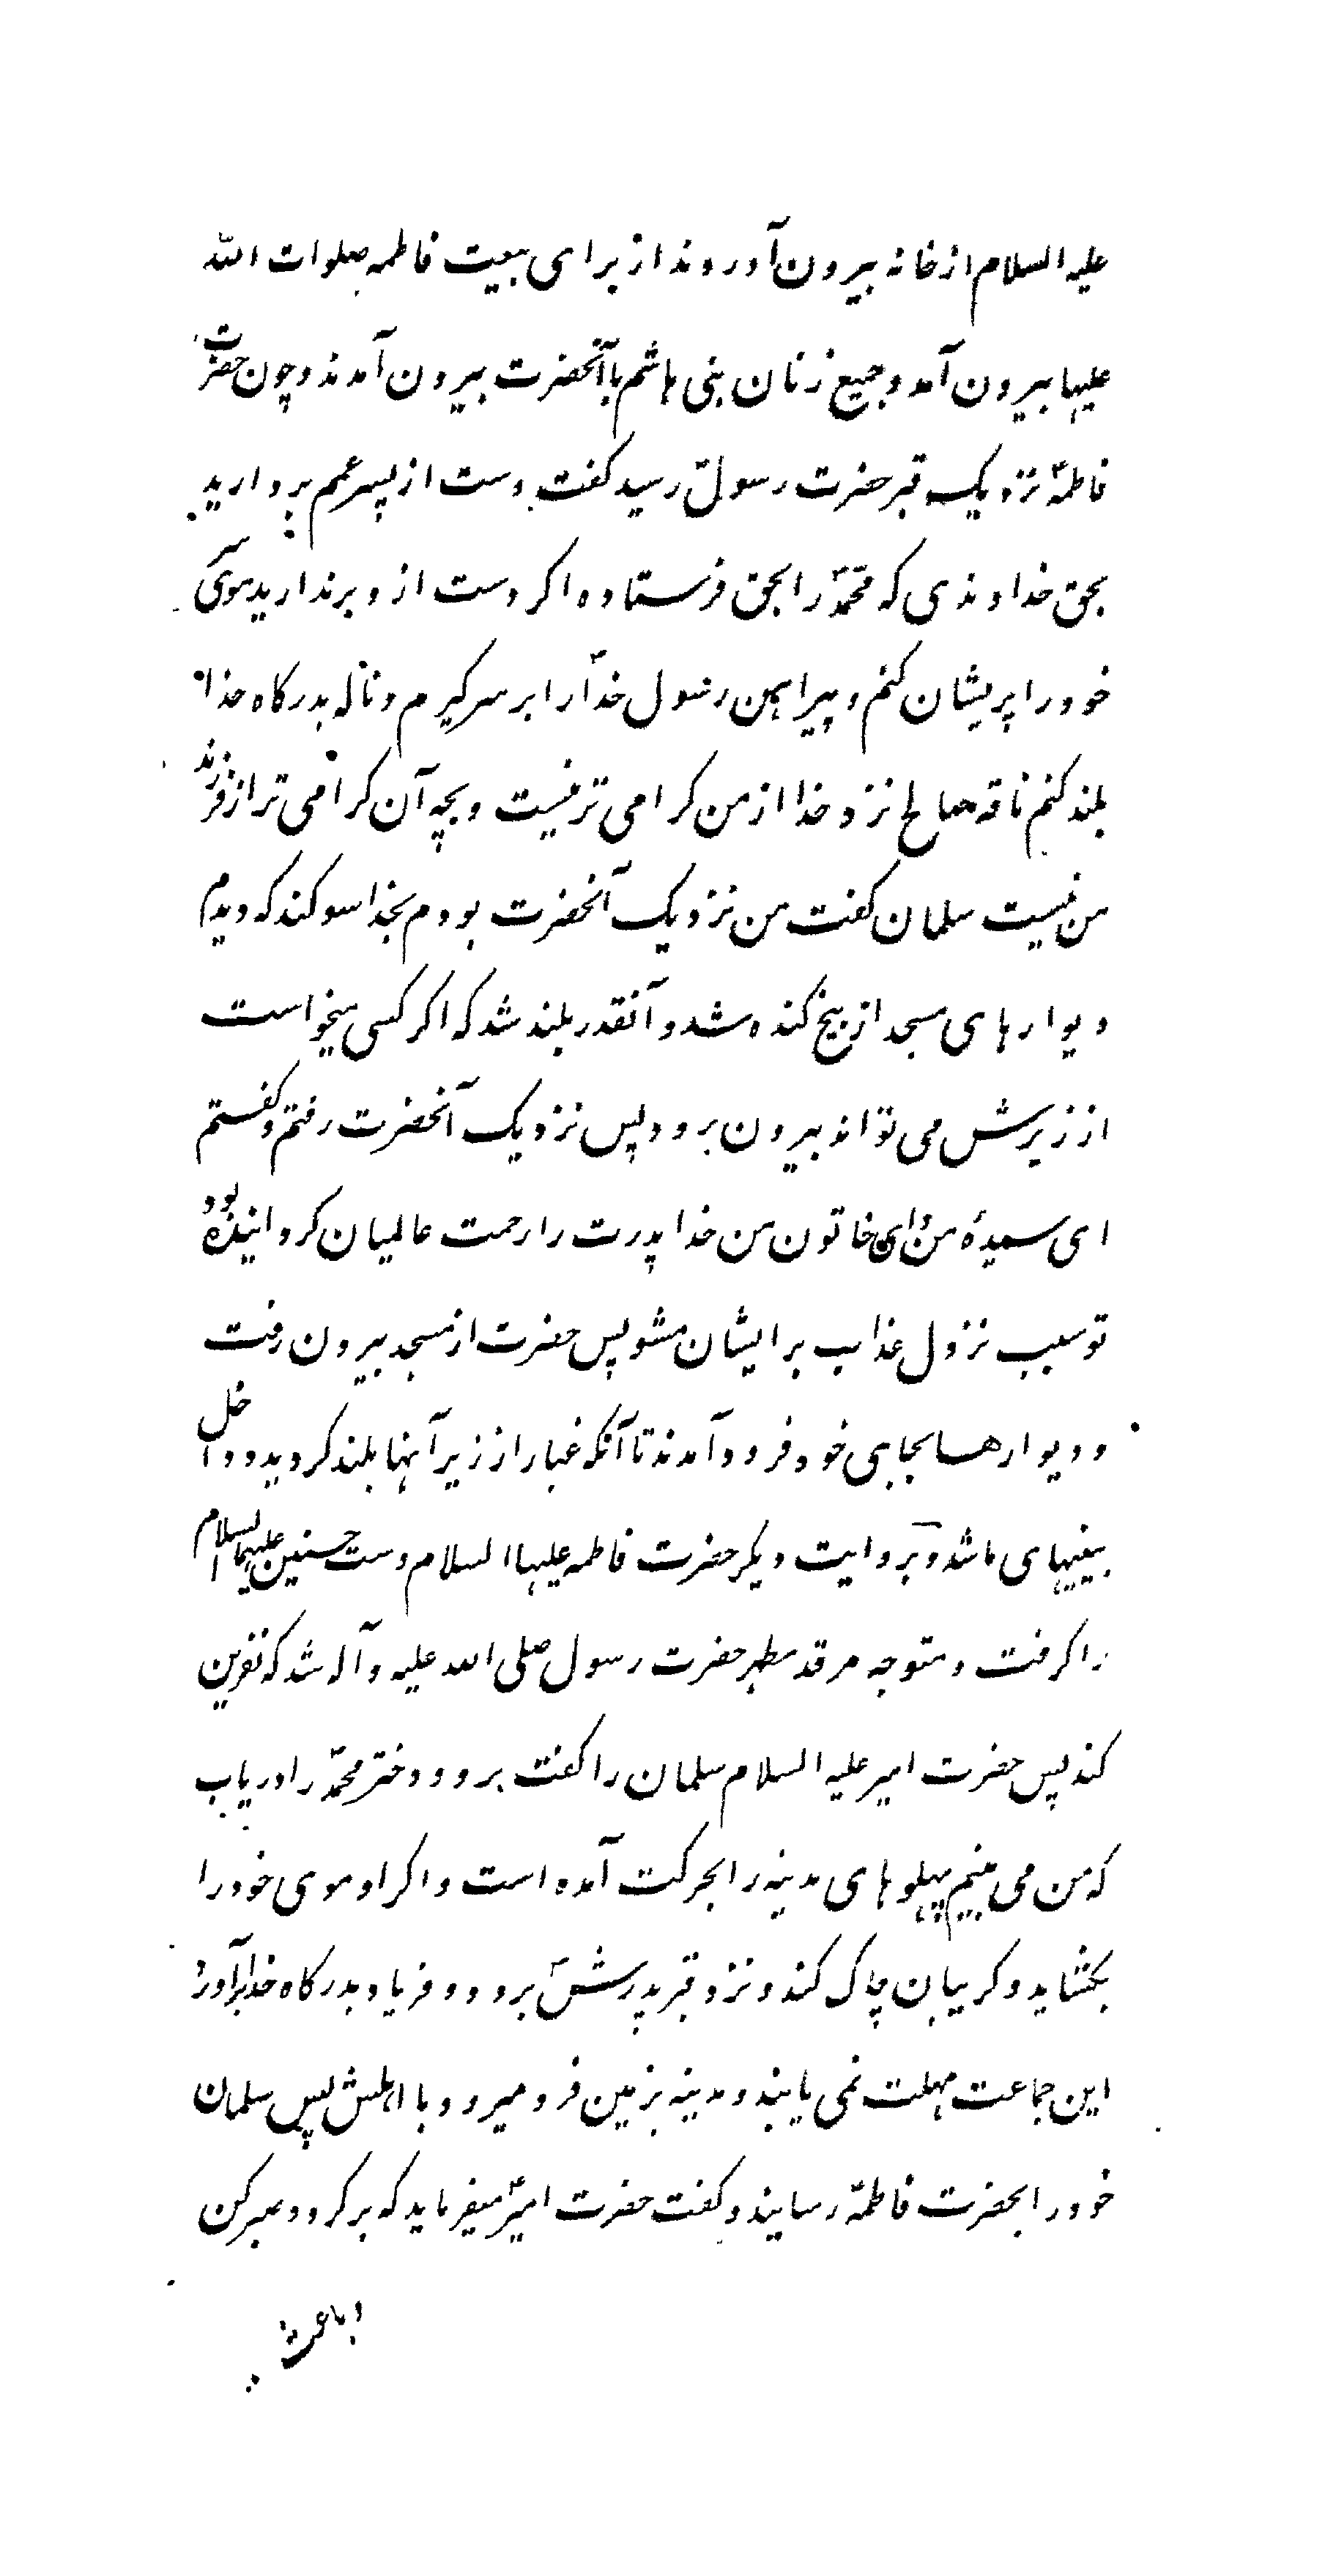 علیه السلام از خانه بیرون آوردند از برای بیعت فاطمه صلوات الله
علیها بیرون آمد و جمیع زنان بنی هاشم با آنحضرت بیرون آمدند و چون حضرت
فاطمهٔ نزدیک قبر حضرت رسولؐ رسید گفت دست از پسر عمم بردارید
بحق خداوندی که محمّدؐ را بحق فرستاده اگر دست از و برندارید موی سر
خود را پریشان کنم و پیراهن رسول خداؐ را بر سر گیرم و ناله بدرگاه خدا
بلند کنم ناقه صالح نزد خدا از من گرامی تر نیست و بچه آن گرامی تر از فرزند
من نیست سلمان گفت من نزدیک آنحضرت بودم بخدا سوگند که دیدم
دیوارهای مسجد از بیخ کنده شد و آنقدر بلند شد که اگر کسی میخواست
از زیرش می تواند بیرون برود پس نزدیک آنحضرت رفتم و گفتم
ای سیدهٔ من و ای خاتون من خدا پدرت را رحمت عالمیان گردانیده بود
تو سبب نزول عذاب بر ایشان مشو پس حضرت از مسجد بیرون رفت
و دیوارها بجای خود فرود آمدند تا آنکه غبار از زیر آنها بلند گردید و داخل
بینیهای ما شد و بروایت دیگر حضرت فاطمه علیها السلام دست حسنین علیهما السلام
را گرفت و متوجه مرقد مطهر حضرت رسول صلی الله علیه و آله شد که نفرین
کند پس حضرت امیر علیه السلام سلمان را گفت برو و دختر محمّدؐ را دریاب
که من می بینم پهلوهای مدینه را بحرکت آمده است و اگر او موی خود را
بگشاید و گریبان چاک کند و نزد قبر پدرشؐ برود و فریاد بدرگاه خدا برآورد
این جماعت مهلت نمی یابند و مدینه بزمین فرو میرود با اهلش پس سلمان
خود را بحضرت فاطمهٔ رسانید و گفت حضرت امیرؑ میفرماید که برگرد و صبر کن